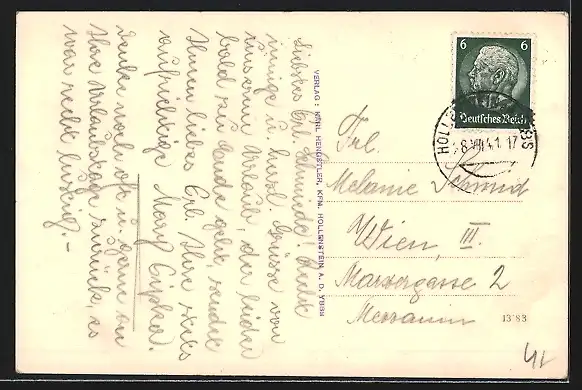 Liebes Frl. Schmidt! Liebe
innige u. herzl. Grüsse von
unserem Urlaub, der leider
bald zu Ende geht, sendet
Ihnen liebes Frl. Ihre stets
aufrichtige Mary
denke noch oft u. gerne an
Ihre Urlaubstage zurück es
war recht lustig. -
VERLAG: KARL HENGSTLER, KFM. HOLLENSTEIN A. D. YBBS
6 6
Deutsches Reich
HOLLEN YBBS
8.VIII.41. 17
Frl.
Melanie Schmid
Wien, III.
Marxergasse 2
Mezzanin
13'83